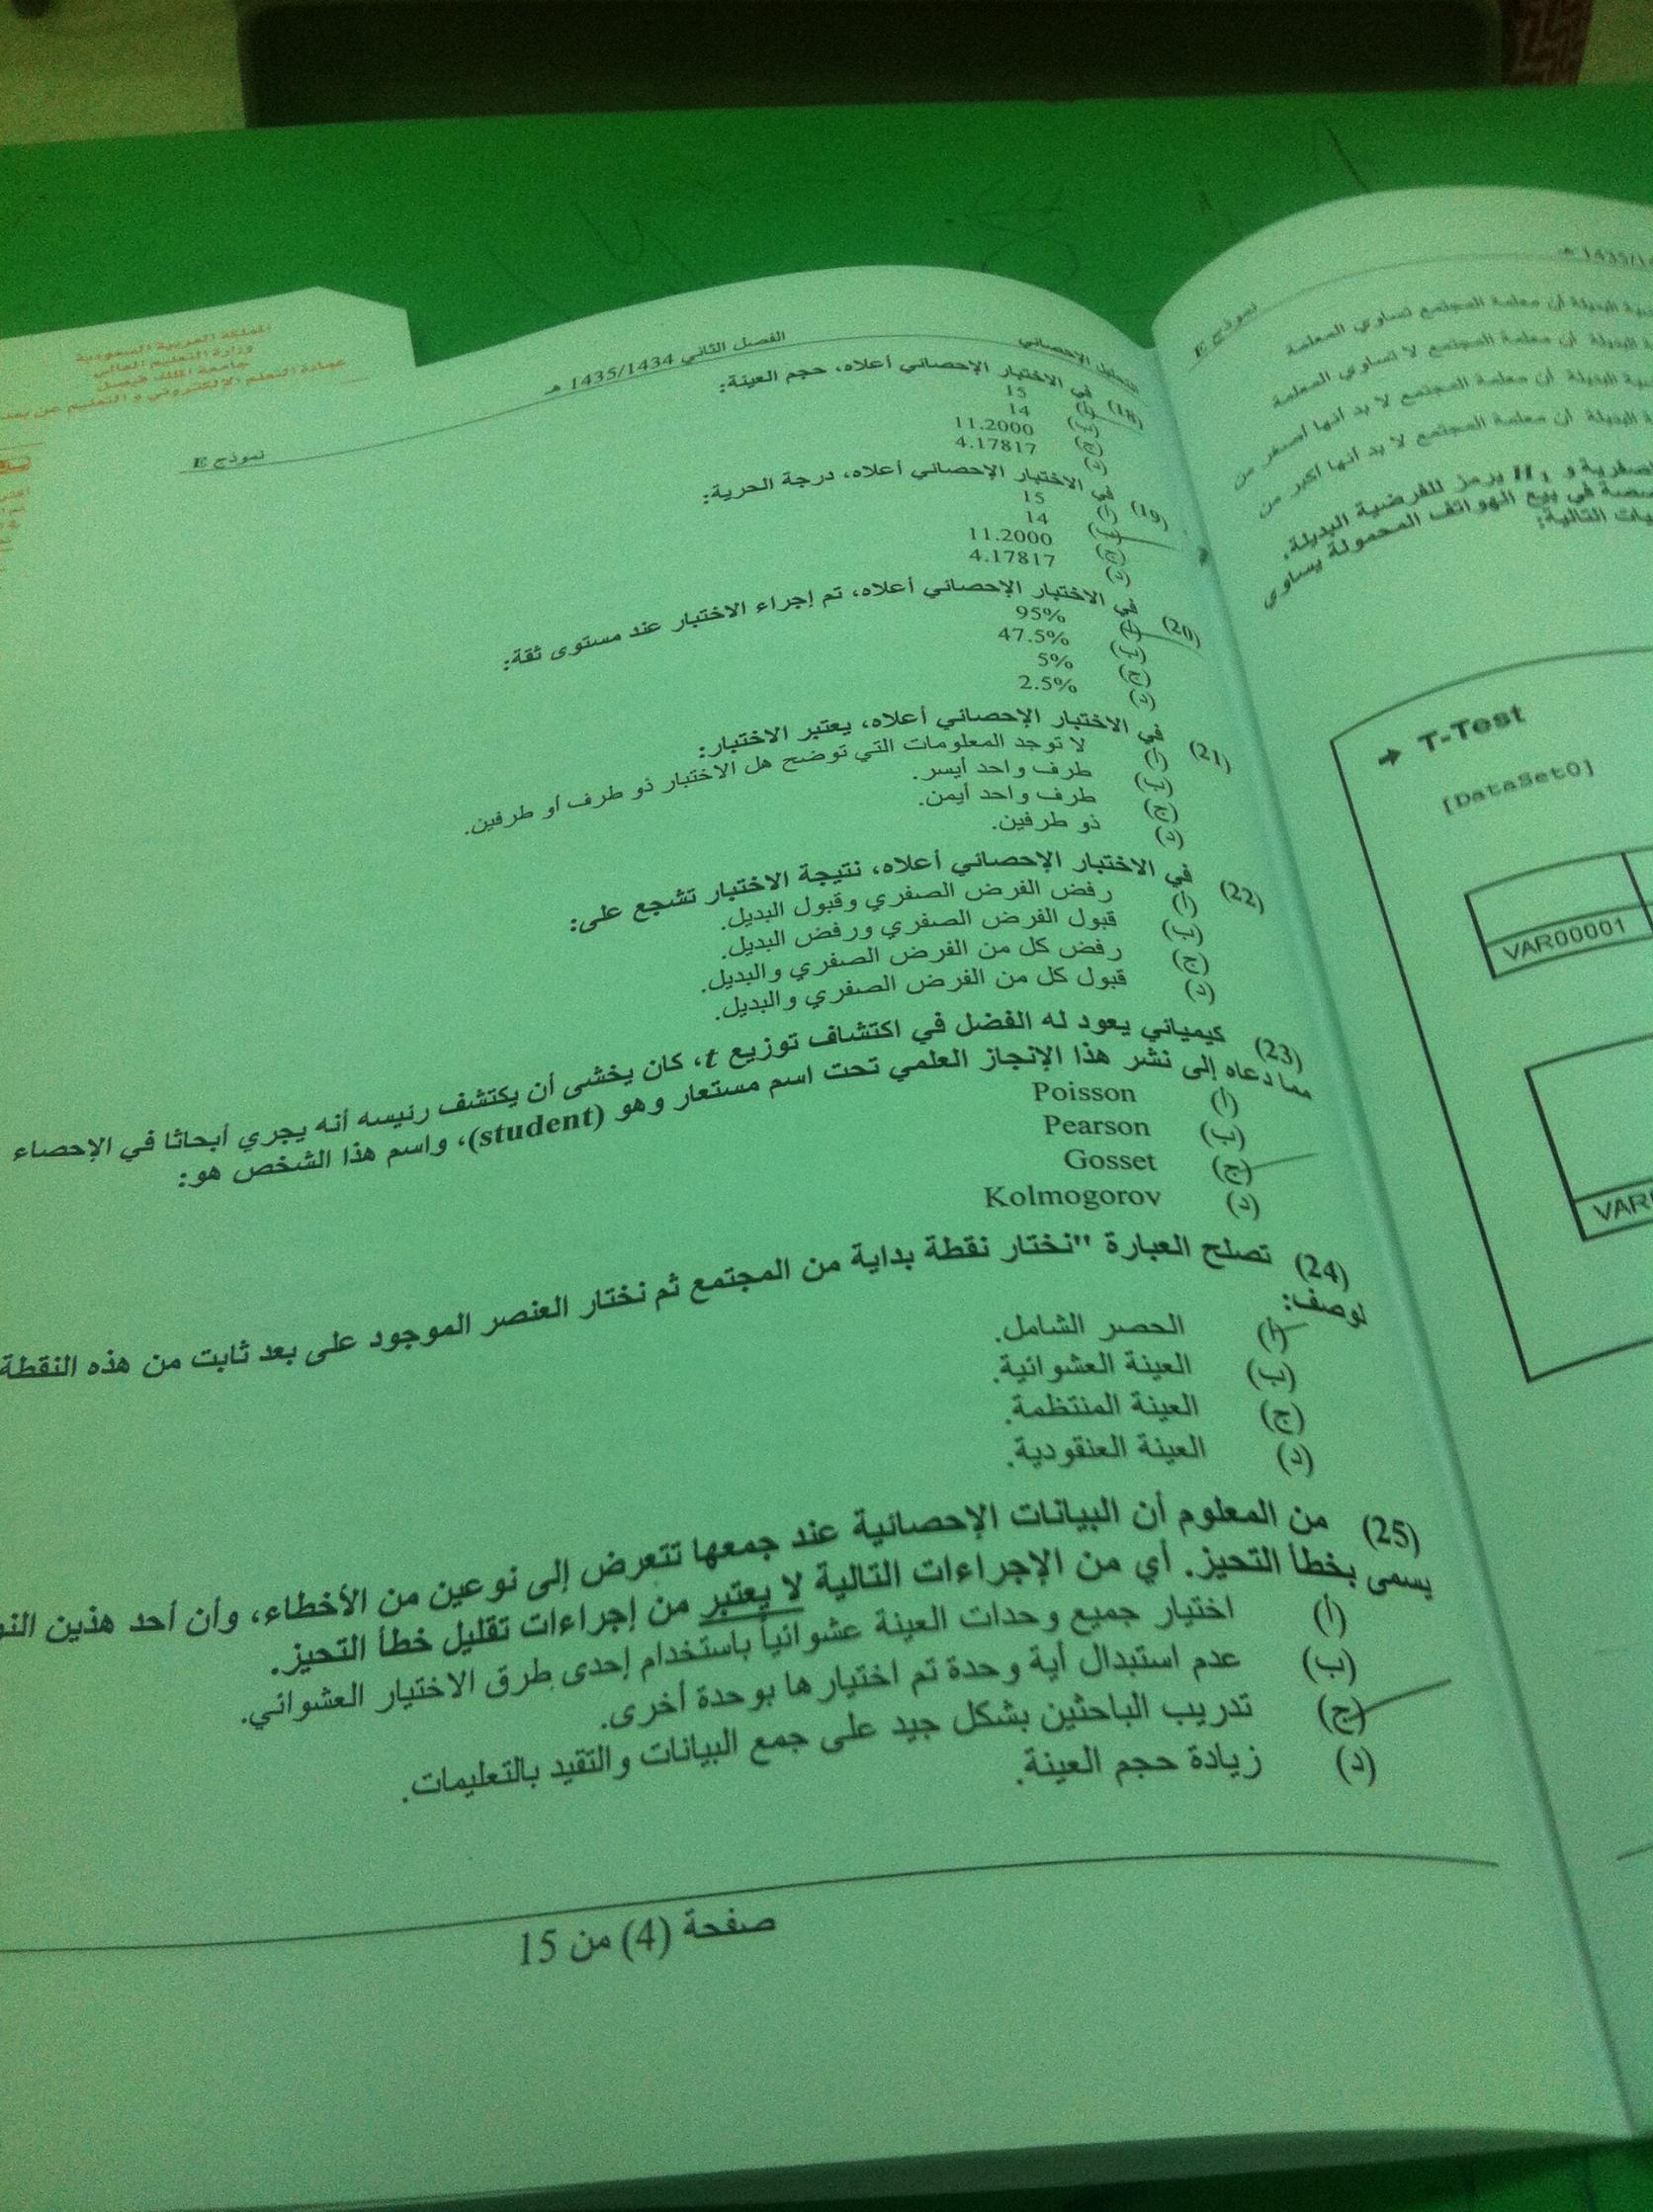 المملكة العربية السعودية
وزارة التعليم العالي
جامعة الملك فيصل
عمادة التعلم الإلكتروني و التعليم عن بعد
التحليل الإحصائي
الفصل الثاني 1435/1434 هـ
نموذج E
(18) في الاختبار الإحصائي أعلاه، حجم العينة:
(أ) 15
(ب) 14
(ج) 11.2000
(د) 4.17817
(19) في الاختبار الإحصائي أعلاه، درجة الحرية:
(أ) 15
(ب) 14
(ج) 11.2000
(د) 4.17817
(20) في الاختبار الإحصائي أعلاه، تم إجراء الاختبار عند مستوى ثقة:
(أ) 95%
(ب) 47.5%
(ج) 5%
(د) 2.5%
(21) في الاختبار الإحصائي أعلاه، يعتبر الاختبار:
(أ) لا توجد المعلومات التي توضح هل الاختبار ذو طرف أو طرفين.
(ب) طرف واحد أيسر.
(ج) طرف واحد أيمن.
(د) ذو طرفين.
(22) في الاختبار الإحصائي أعلاه، نتيجة الاختبار تشجع على:
(أ) رفض الفرض الصفري وقبول البديل.
(ب) قبول الفرض الصفري ورفض البديل.
(ج) رفض كل من الفرض الصفري والبديل.
(د) قبول كل من الفرض الصفري والبديل.
(23) كيميائي يعود له الفضل في اكتشاف توزيع t، كان يخشى أن يكتشف رئيسه أنه يجري أبحاثا في الإحصاء
مما دعاه إلى نشر هذا الإنجاز العلمي تحت اسم مستعار وهو (student)، واسم هذا الشخص هو:
(أ) Poisson
(ب) Pearson
(ج) Gosset
(د) Kolmogorov
(24) تصلح العبارة "نختار نقطة بداية من المجتمع ثم نختار العنصر الموجود على بعد ثابت من هذه النقطة
لوصف:
(أ) الحصر الشامل.
(ب) العينة العشوائية.
(ج) العينة المنتظمة.
(د) العينة العنقودية.
(25) من المعلوم أن البيانات الإحصائية عند جمعها تتعرض إلى نوعين من الأخطاء، وأن أحد هذين
يسمى بخطأ التحيز. أي من الإجراءات التالية لا يعتبر من إجراءات تقليل خطأ التحيز.
(أ) اختيار جميع وحدات العينة عشوائياً باستخدام إحدى طرق الاختيار العشوائي.
(ب) عدم استبدال أية وحدة تم اختيارها بوحدة أخرى.
(ج) تدريب الباحثين بشكل جيد على جمع البيانات والتقيد بالتعليمات.
(د) زيادة حجم العينة.
صفحة (4) من 15
نموذج E
البديلة أن معلمة المجتمع تساوي المعلمة
البديلة أن معلمة المجتمع لا تساوي المعلمة
البديلة أن معلمة المجتمع لا بد أنها أصغر من
البديلة أن معلمة المجتمع لا بد أنها أكبر من
و H1 يرمز للفرضية البديلة.
في بيع الهواتف المحمولة يساوي
التالية:
T-Test
[DataSet0]
VAR00001